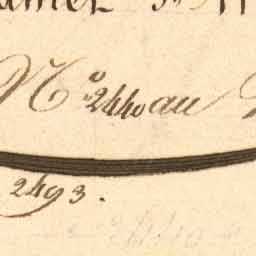 N° 2440 au
2493.